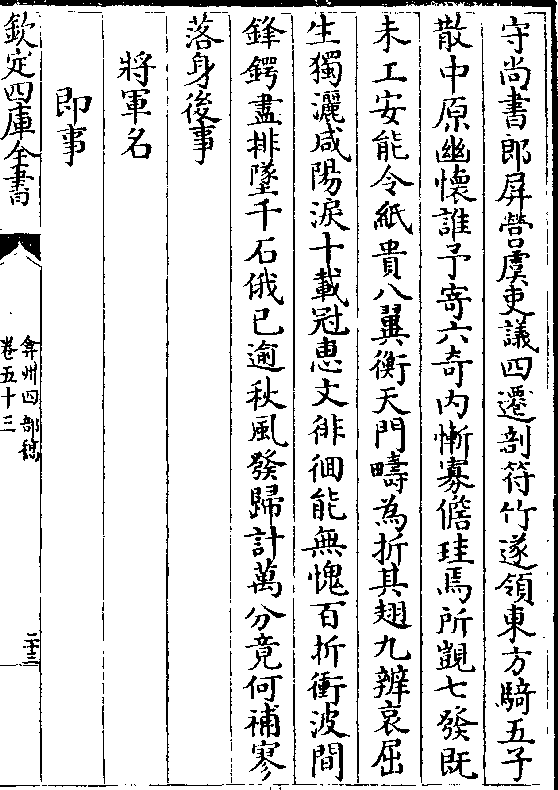 守尚書郎屏營虞吏議四遷剖符竹遂領東方騎五子
散中原幽懷誰予寄六奇内慚寡儋珪焉所覬七發旣
未工安能令紙貴八翼衝天門疇為折其翅九辨哀屈
生獨灑咸陽淚十載冠惠文徘徊能無愧百折衝波間
鋒鍔盡排墜千石俄已逾秋風發歸計萬分竟何補寥
落身後事
將軍名
即事
欽定四庫全書
弇州四部稿
卷五十三
二十三